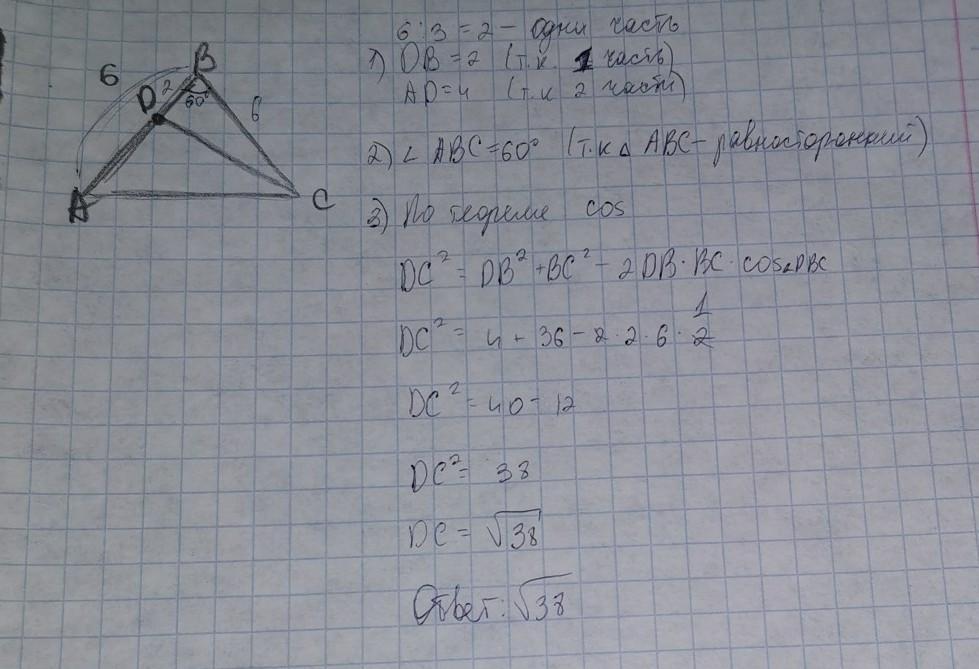 6 : 3 = 2 - одни часть
1) DB = 2 (т.к. 1 часть)
AD = 4 (т.к 2 части)
6
B
D
2
60°
6
A
C
2) ∠ ABC = 60° (т.к Δ ABC - равносторонний)
3) По теореме cos
DC² = DB² + BC² - 2 DB · BC · cos∠DBC
DC² = 4 + 36 - 2 · 2 · 6 · 1/2
DC² = 40 - 12
DC² = 38
DC = √38
Ответ: √38